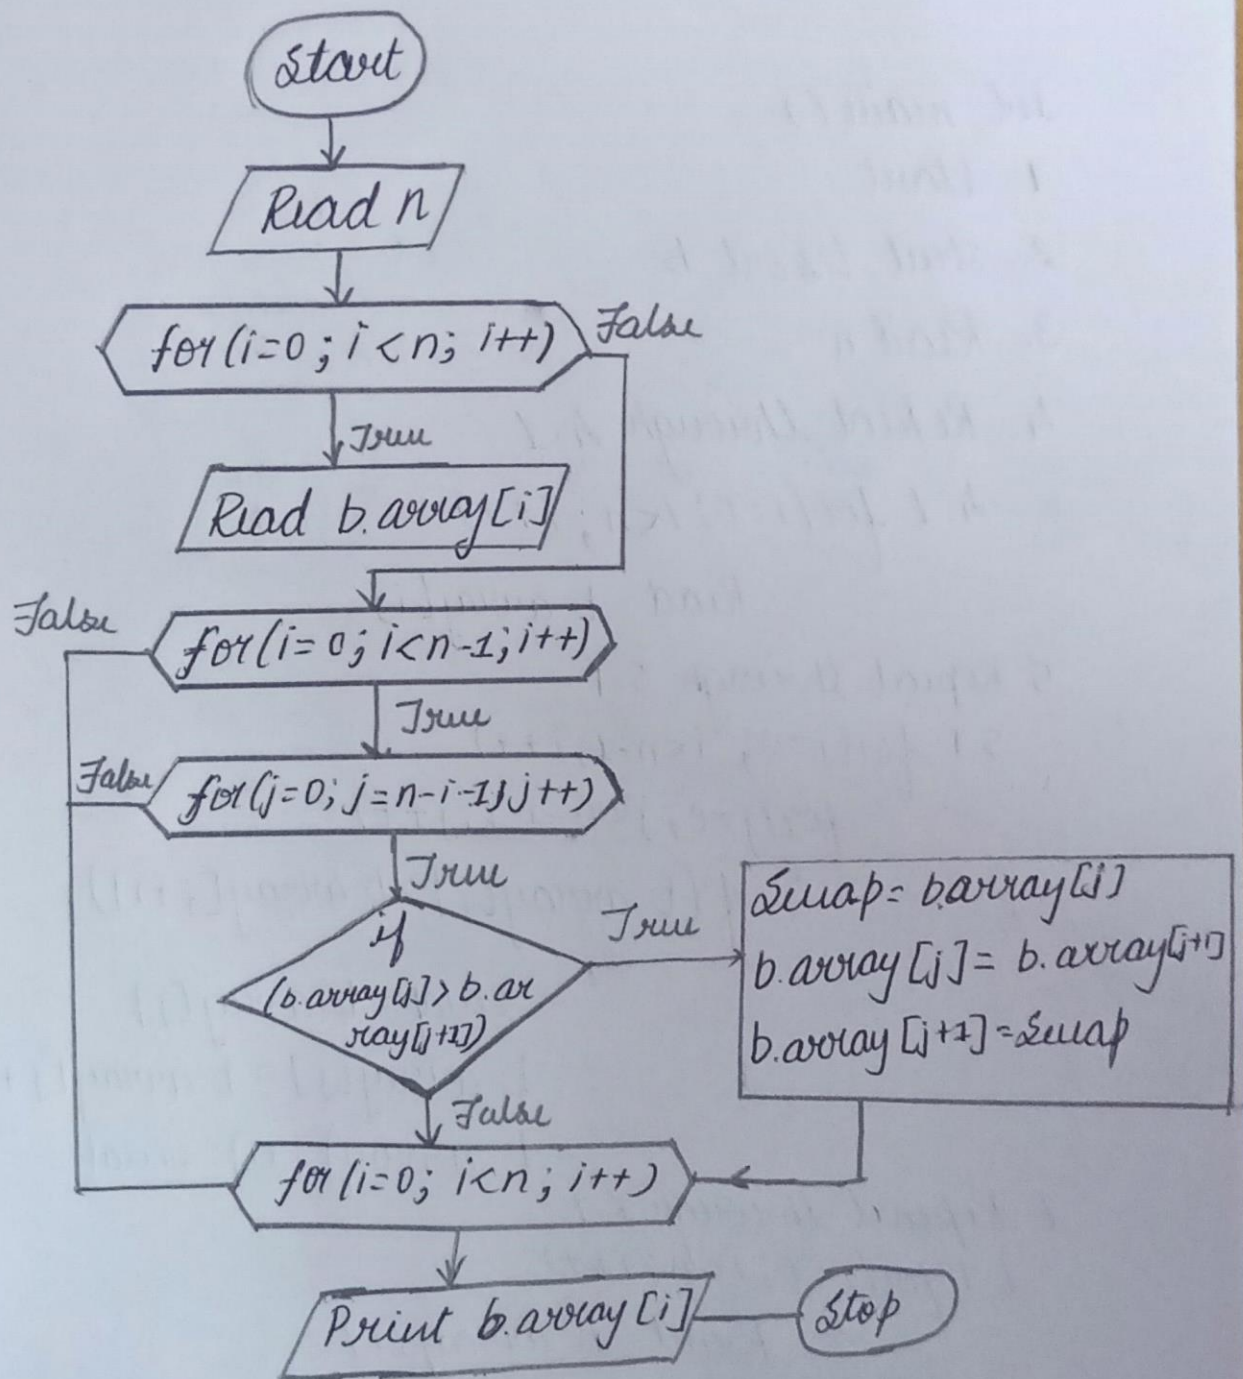 Start
Read n
for(i=0; i<n; i++)
False
True
Read b.array[i]
False
for(i=0; i<n-1; i++)
True
False
for(j=0; j=n-i-1; j++)
True
if
(b.array[j]>b.ar
ray[j+1])
True
Swap= b.array[j]
b.array[j]= b.array[j+1]
b.array[j+1]=Swap
False
for(i=0; i<n; i++)
Print b.array[i]
Stop